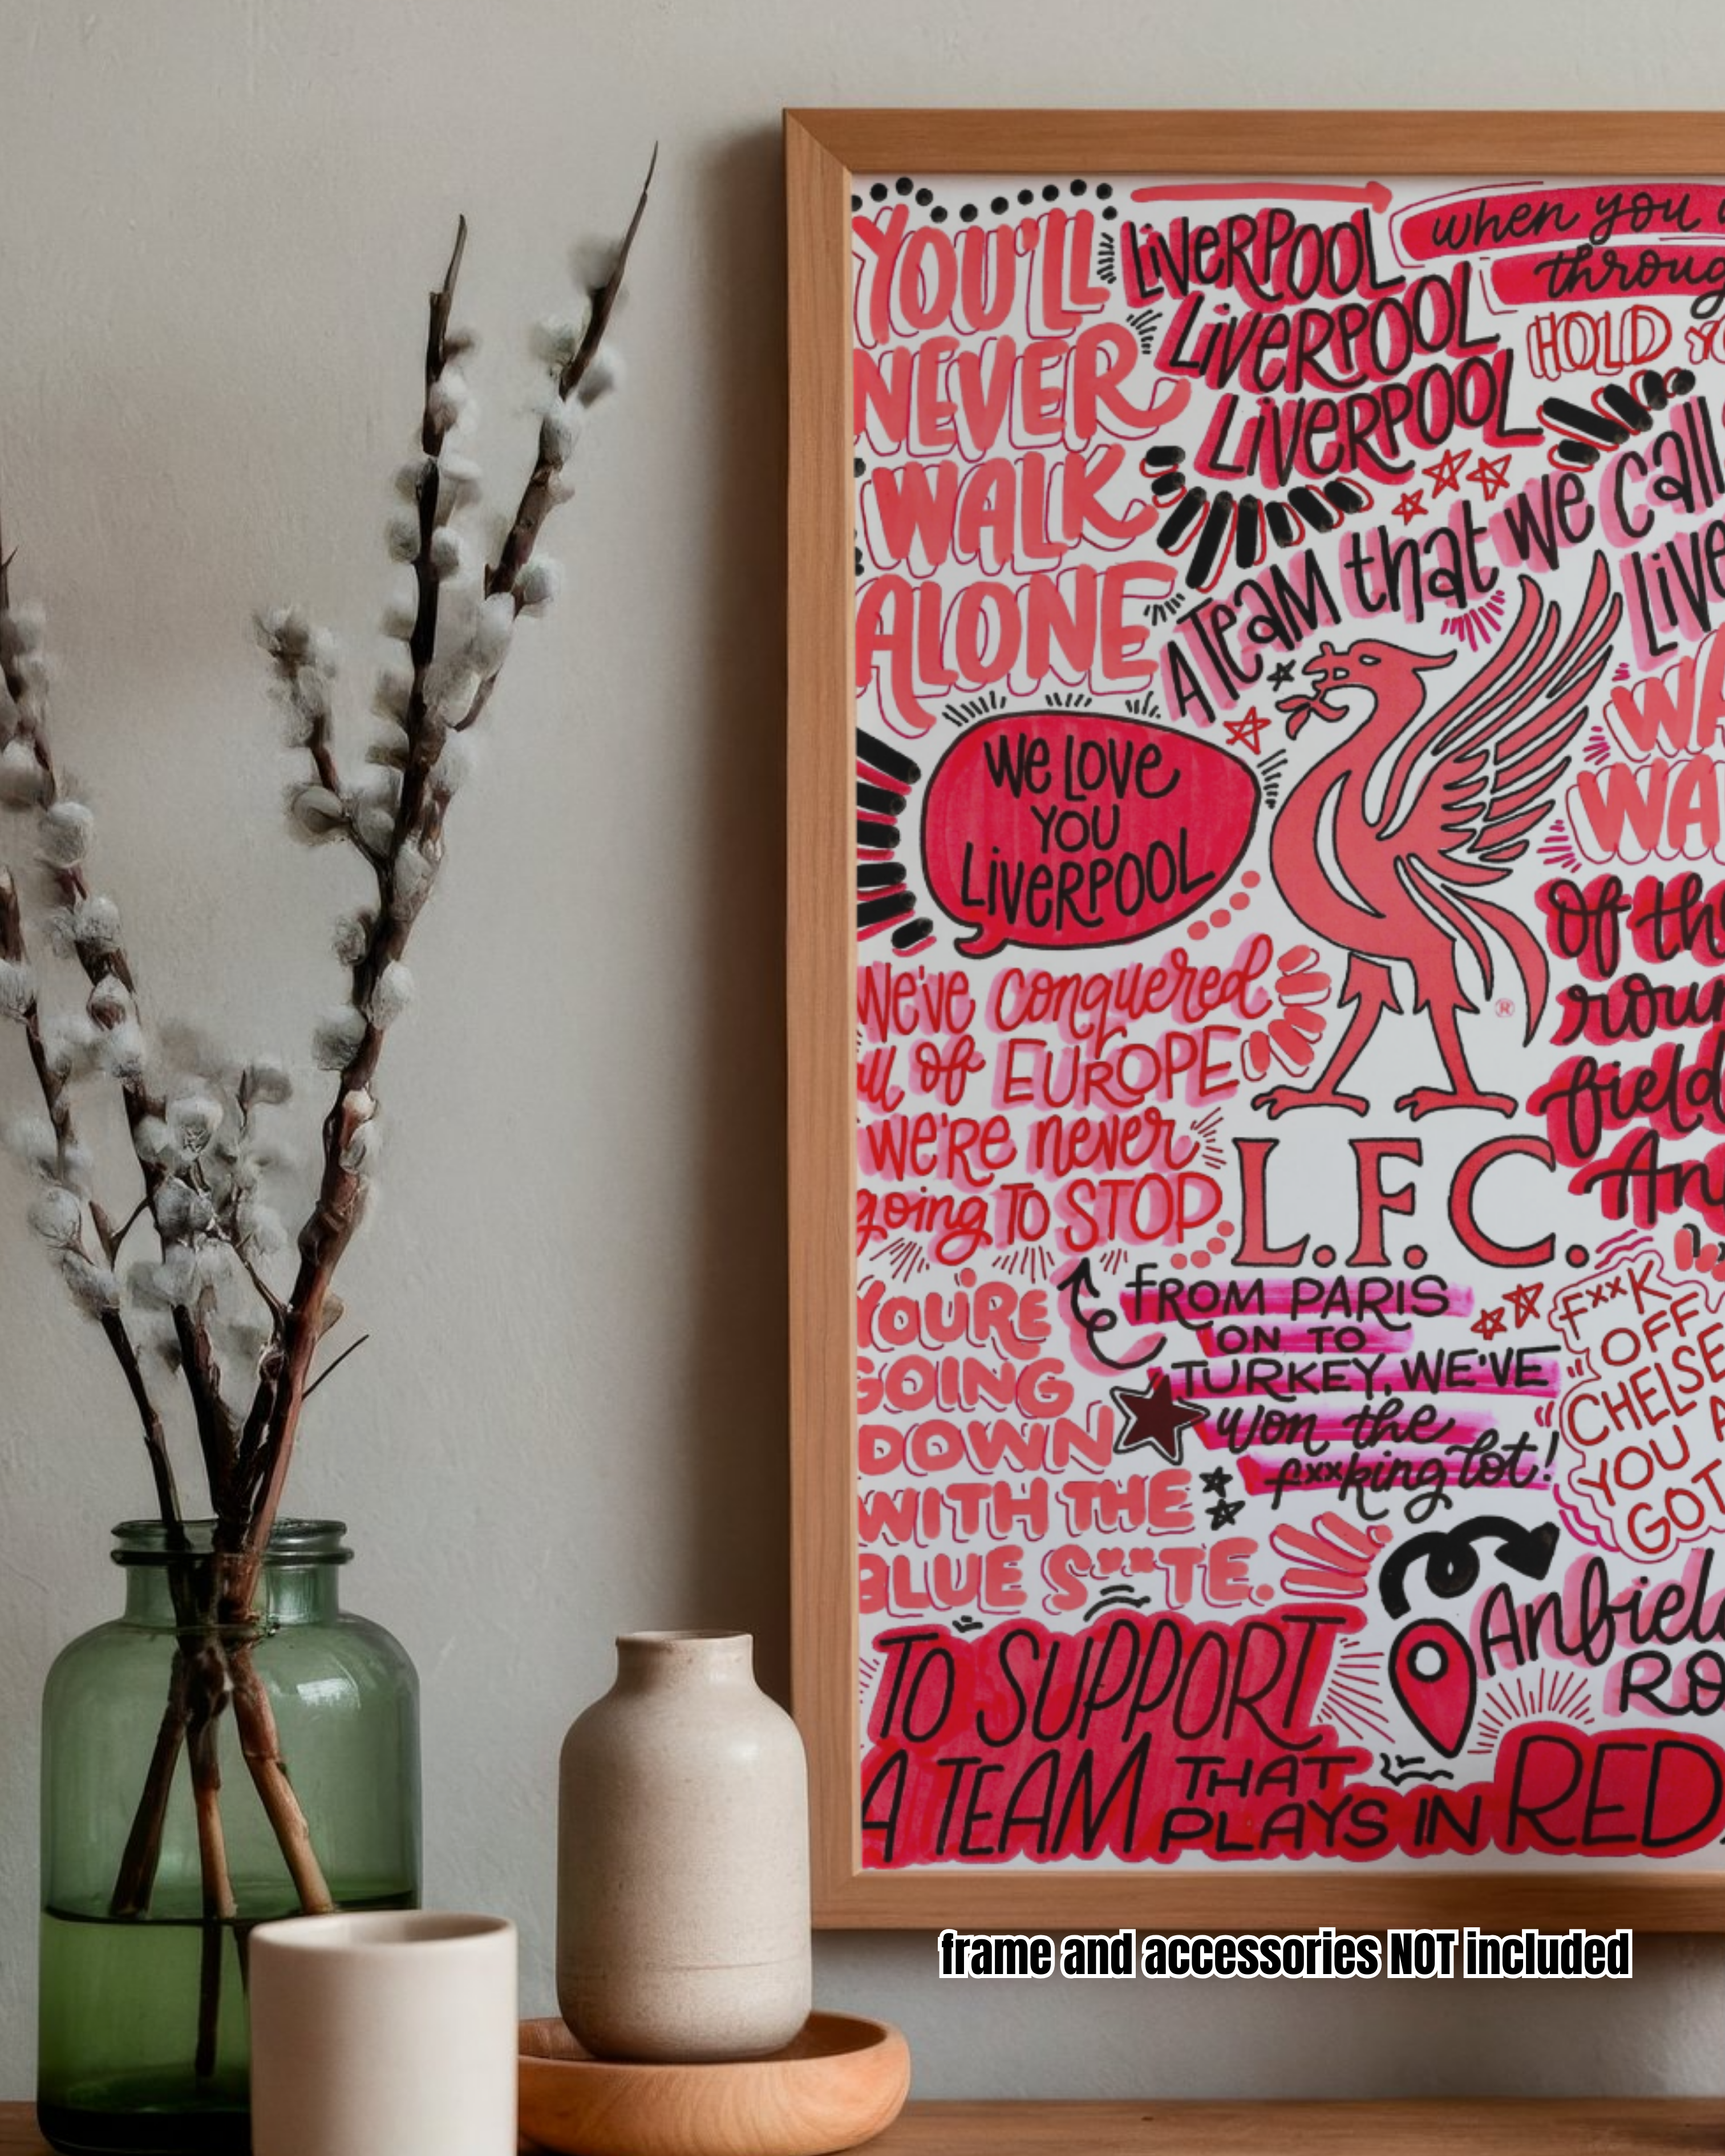 YOU'LL
NEVER
WALK
ALONE
LIVERPOOL
LIVERPOOL
LIVERPOOL
when you
throug
HOLD
A TEAM that we call
LIVE
WA
WA
We Love
YOU
LIVERPOOL
Of th
roun
field
An
We've conquered
all of EUROPE
we're never
going TO STOP
L.F.C.
®
YOU'RE
GOING
DOWN
WITH THE
BLUE S**TE.
FROM PARIS
ON TO
TURKEY, WE'VE
won the
f**king lot!
F**K
OFF
CHELSE
YOU A
GOT
Anfiel
RO
TO SUPPORT
A TEAM THAT
PLAYS IN RED
frame and accessories NOT included